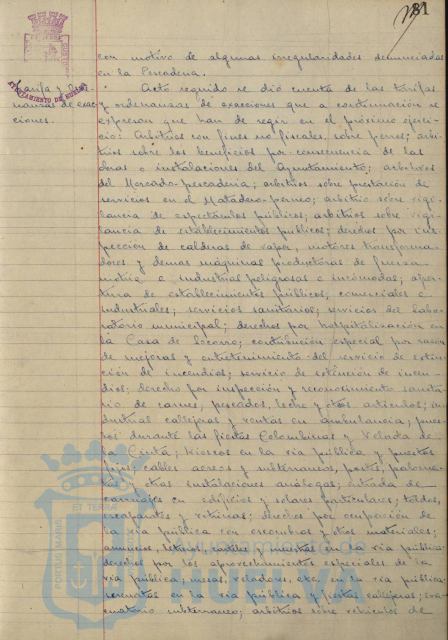 81
con motivo de algunas irregularidades denunciadas
en la Pescaderia.
Tarifas y Orde-
nanzas de exac-
ciones.
Acto seguido se dió cuenta de las tarifas
y ordenanzas de exacciones que a continuación se
expresan que han de regir en el próximo ejerci-
cio: Arbitrios con fines no fiscales, sobre perros; arbi-
trios sobre los beneficios por consecuencia de las
obras o instalaciones del Ayuntamiento; arbitrios
del Mercado-pescaderia; arbitrios sobre prestación de
servicios en el Matadero-perneo; arbitrio sobre vigi-
lancia de espectáculos públicos; arbitrios sobre vigi-
lancia de establecimientos públicos; derechos por ins-
pección de calderas de vapor, motores transforma-
dores y demas máquinas productoras de fuerza
motriz e industrias peligrosas e incómodas; aper-
tura de establecimientos públicos, comerciales e
industriales; servicios sanitarios; servicios del labo-
ratorio municipal; derechos por hospitalización en
la Casa de Socorro; contribución especial por razón
de mejoras y entretenimiento del servicio de extin-
ción de incendios; servicio de extinción de incen-
dios; derecho por inspección y reconocimiento sanita-
rio de carnes, pescados, leche y otros articulos; in-
dustrias callejeras y ventas en ambulancia; pues-
tos durante las fiestas Colombinas y Velada de
la Cinta; kioscos en la via pública y puestos
fijos; cables aereos y subterraneos, postes, palomi-
llas y otras instalaciones análogas; entrada de
carruajes en edificios y solares particulares; toldos,
escaparates y vitrinas; derechos por ocupación de
la via pública con escombros y otros materiales;
anuncios, letreros, carteles y muestras en la via pública;
derechos por los aprovechamientos especiales de la
via pública; mesas, veladores, etc. en la via pública;
serenatas en la via pública y fiestas callejeras; eva-
cuatorio subterraneo; arbitrios sobre vehiculos de
AYUNTAMIENTO DE HUELVA
PORTUS MARIS
ET TERRÆ